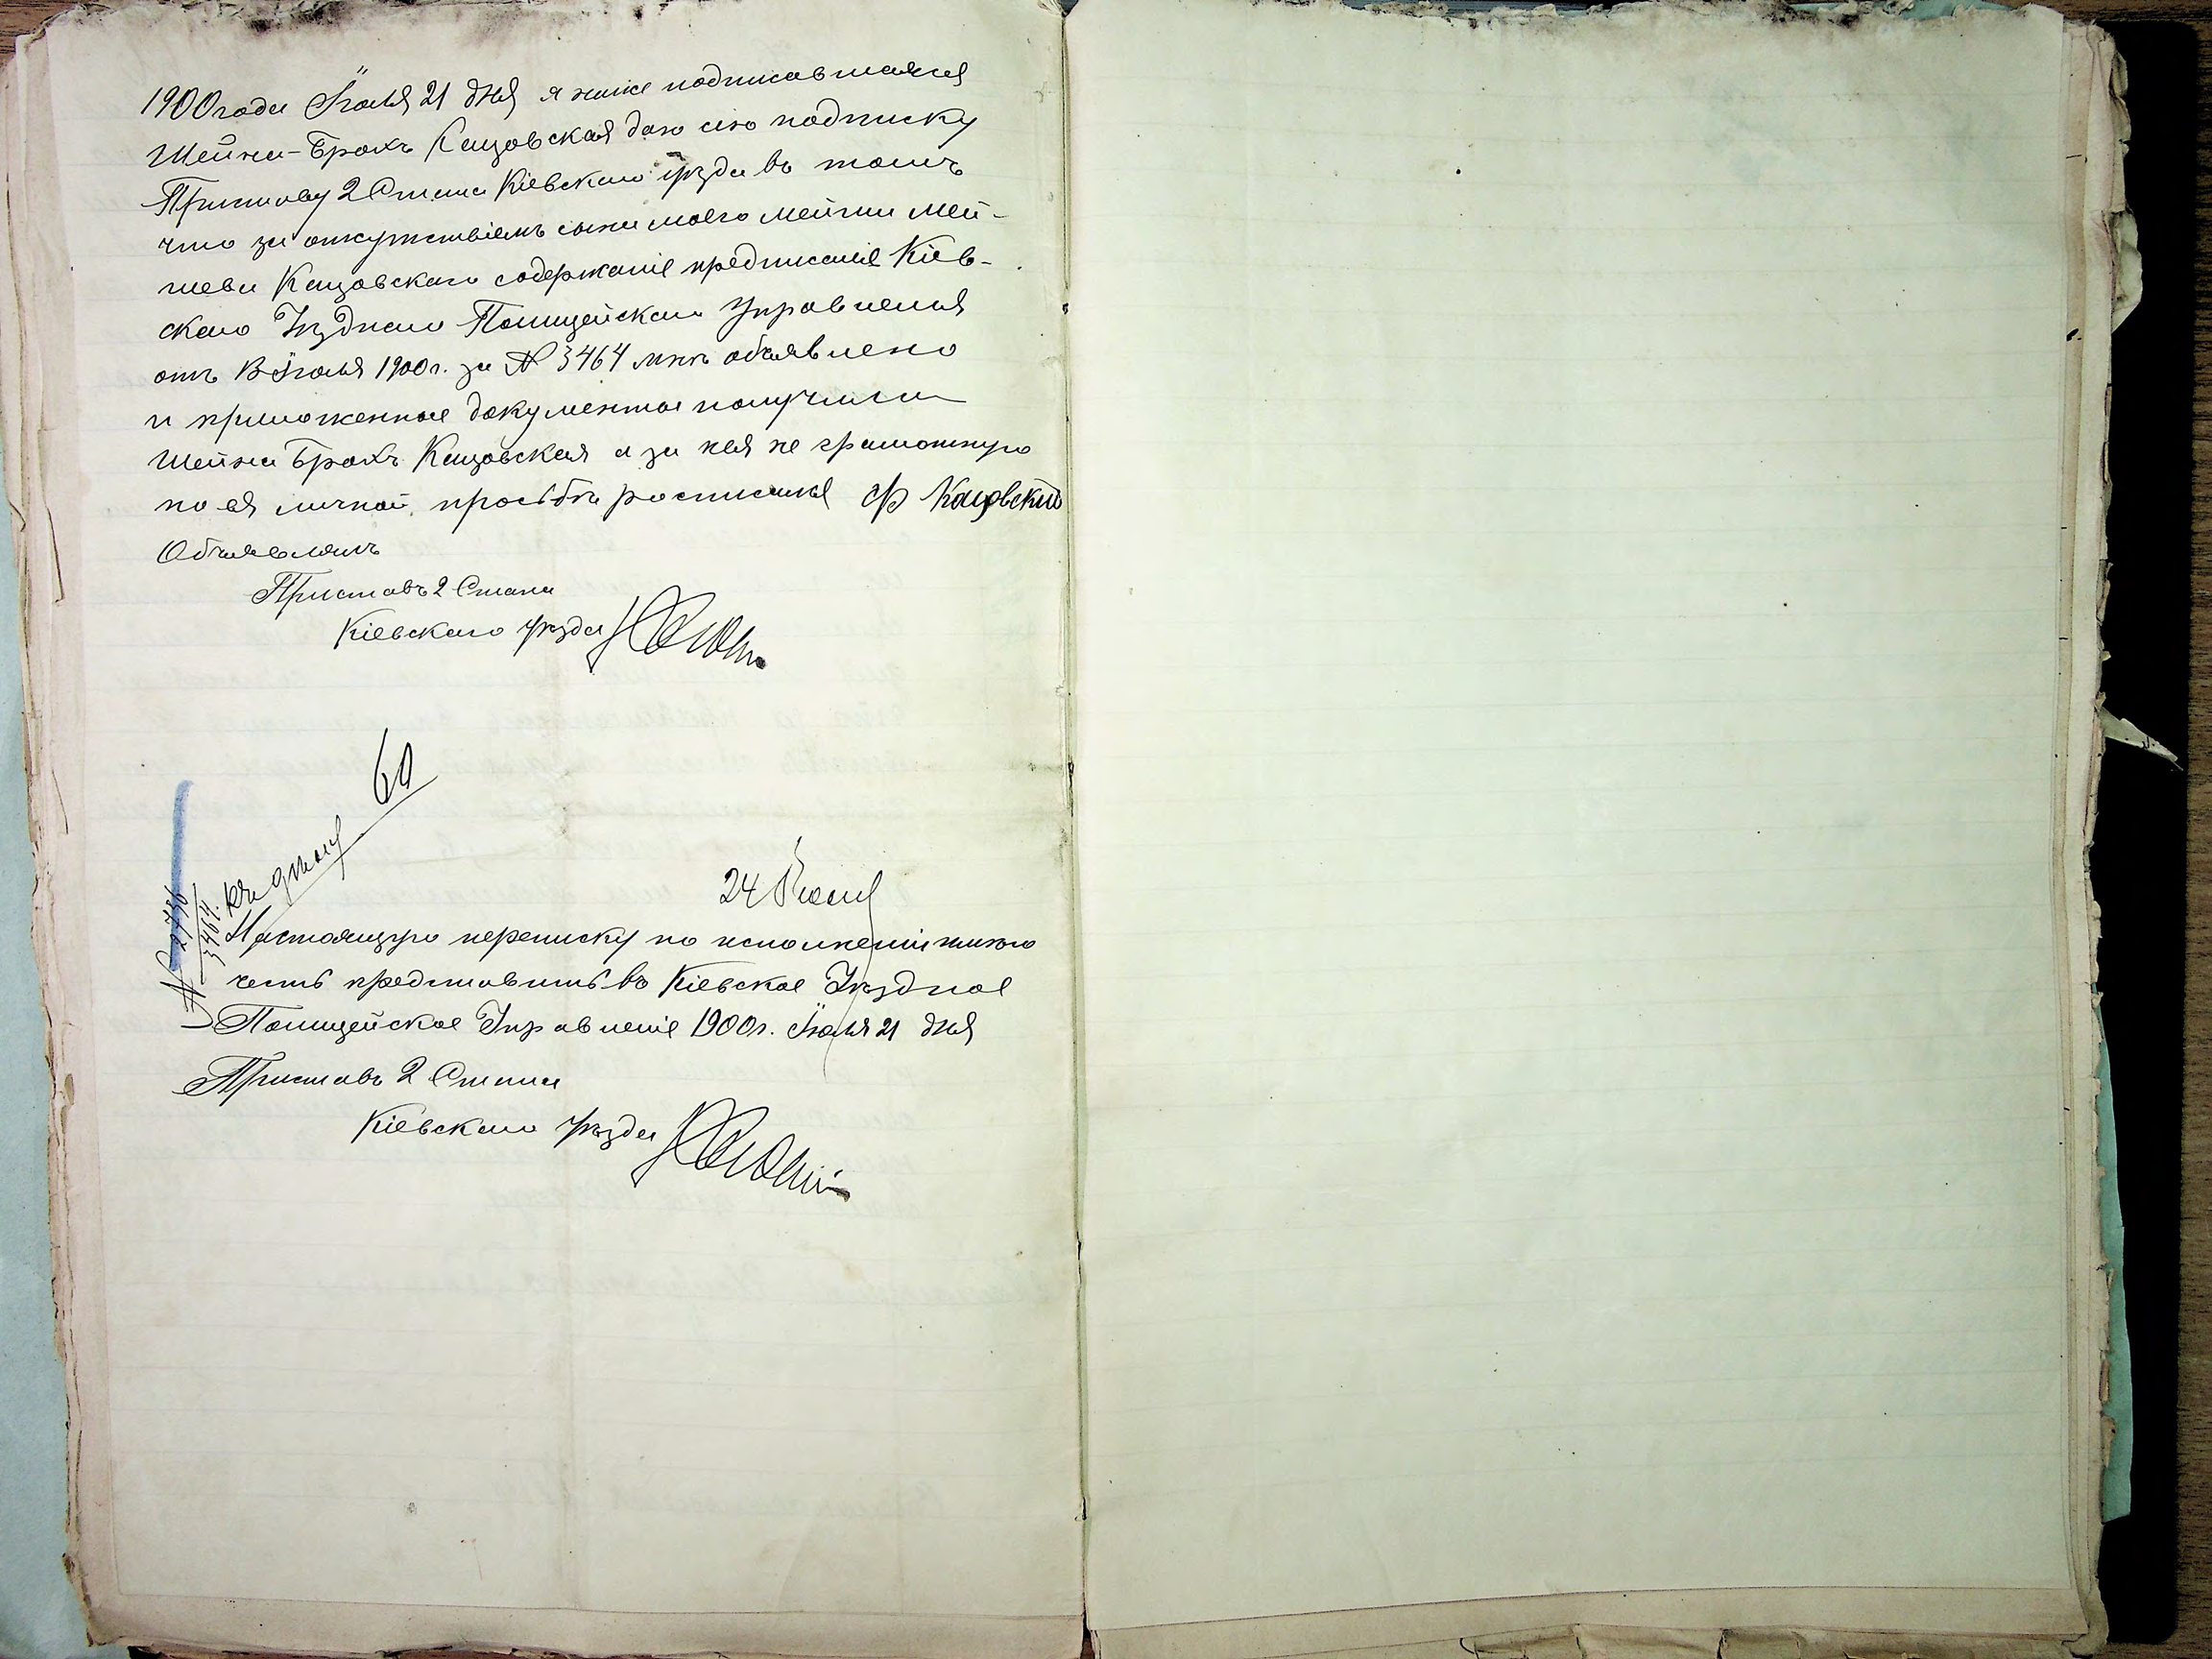 1900 года Іюля 21 дня я ниже подписавшаяся
Шейна-Брохъ Кацовская даю сію подписку
Приставу 2 Стана Кіевскаго уѣзда въ томъ
что за отсутствіемъ сына моего Мейши Мей-
шева Кацовскаго содержаніе предписаніе Кіев-
скаго Уѣзднаго Полицейскаго Управленія
отъ Іюля 1900 г. за № 3464 мнѣ объявлено
и приложенные документы получила
Шейна Брохъ Кацовская а за нея не грамотную
по ея личной прозьбѣ росписался Ф Кацовскій
Объявлялъ
Приставъ 2 Стана
Кіевскаго уѣзда
60
Къ дѣлу
24 Іюля
№ 3464.
Настоящую переписку по исполненіи имѣю
честь представить въ Кіевское Уѣздное
Полицейское Управленіе 1900 г. Іюля 21 дня
Приставъ 2 Стана
Кіевскаго уѣзда